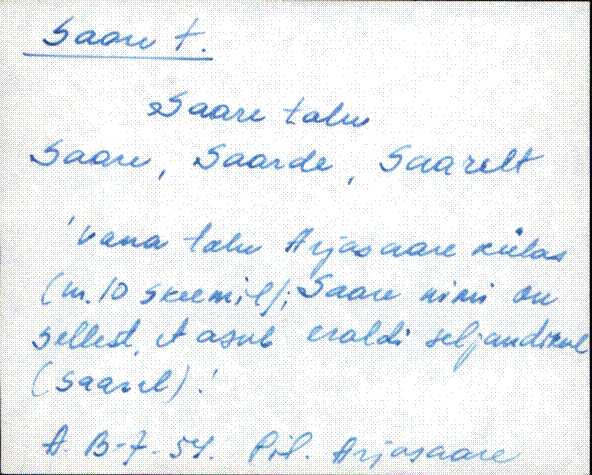 Saare t.
Saare talu
Saare, Saarde, Saarelt
'Vana talu Arjasaare külas
(nr. 10 skeemil); Saare nimi on
sellest, et asub eraldi seljandikul
(saarel).'
A. B-7-54. Pil. Arjasaare